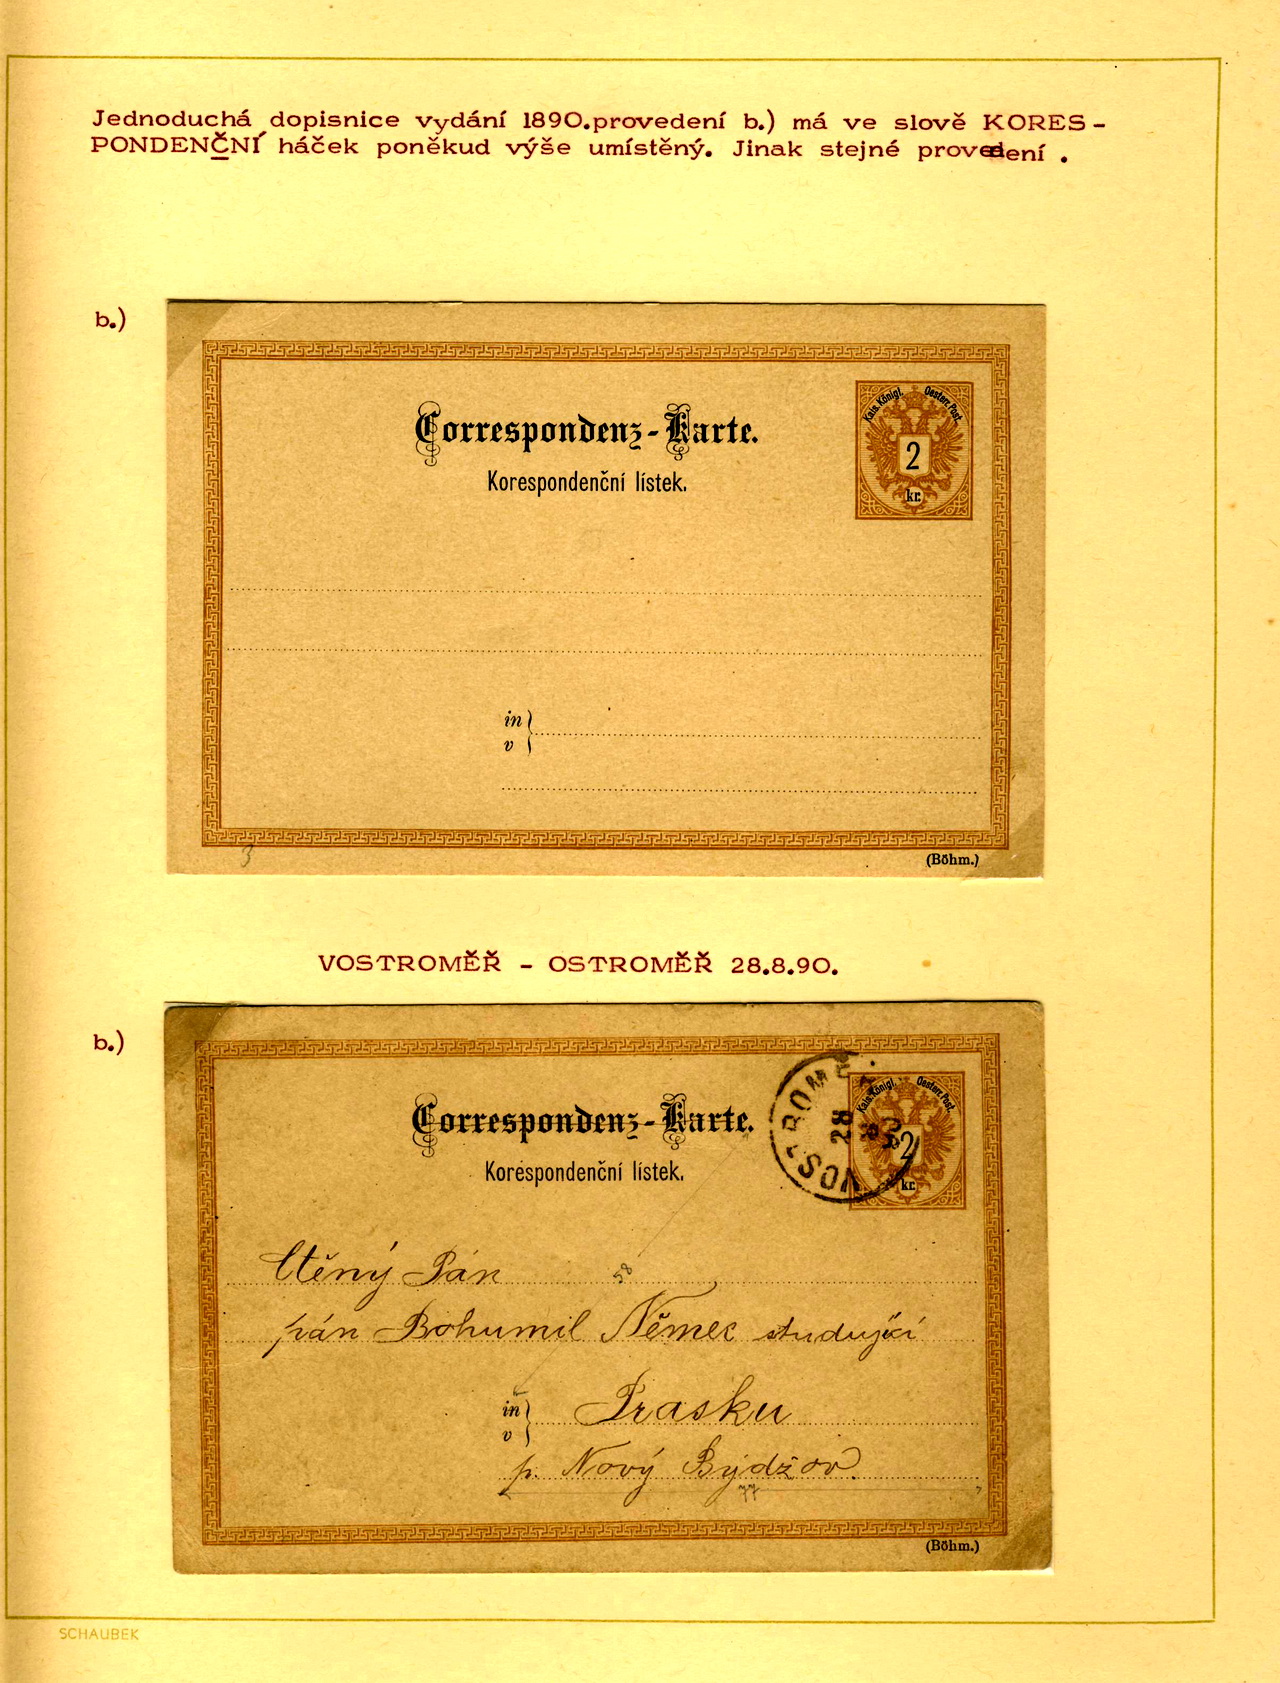 Jednoduchá dopisnice vydání 1890.provedení b.) má ve slově KORES-
PONDENČNÍ háček poněkud výše umístěný. Jinak stejné provedení .
b.)
Correspondenz-Karte.
Korespondenční lístek.
Kais. Königl. Oesterr. Post.
2
kr.
in
v
3
(Böhm.)
VOSTROMĚŘ - OSTROMĚŘ 28.8.90.
b.)
Correspondenz-Karte.
Korespondenční lístek.
Kais. Königl. Oesterr. Post.
2
kr.
28
Ctěný Pán
58
pán Bohumil Němec studující
in
v
Prasku
p. Nový Bydžov.
77
(Böhm.)
SCHAUBEK